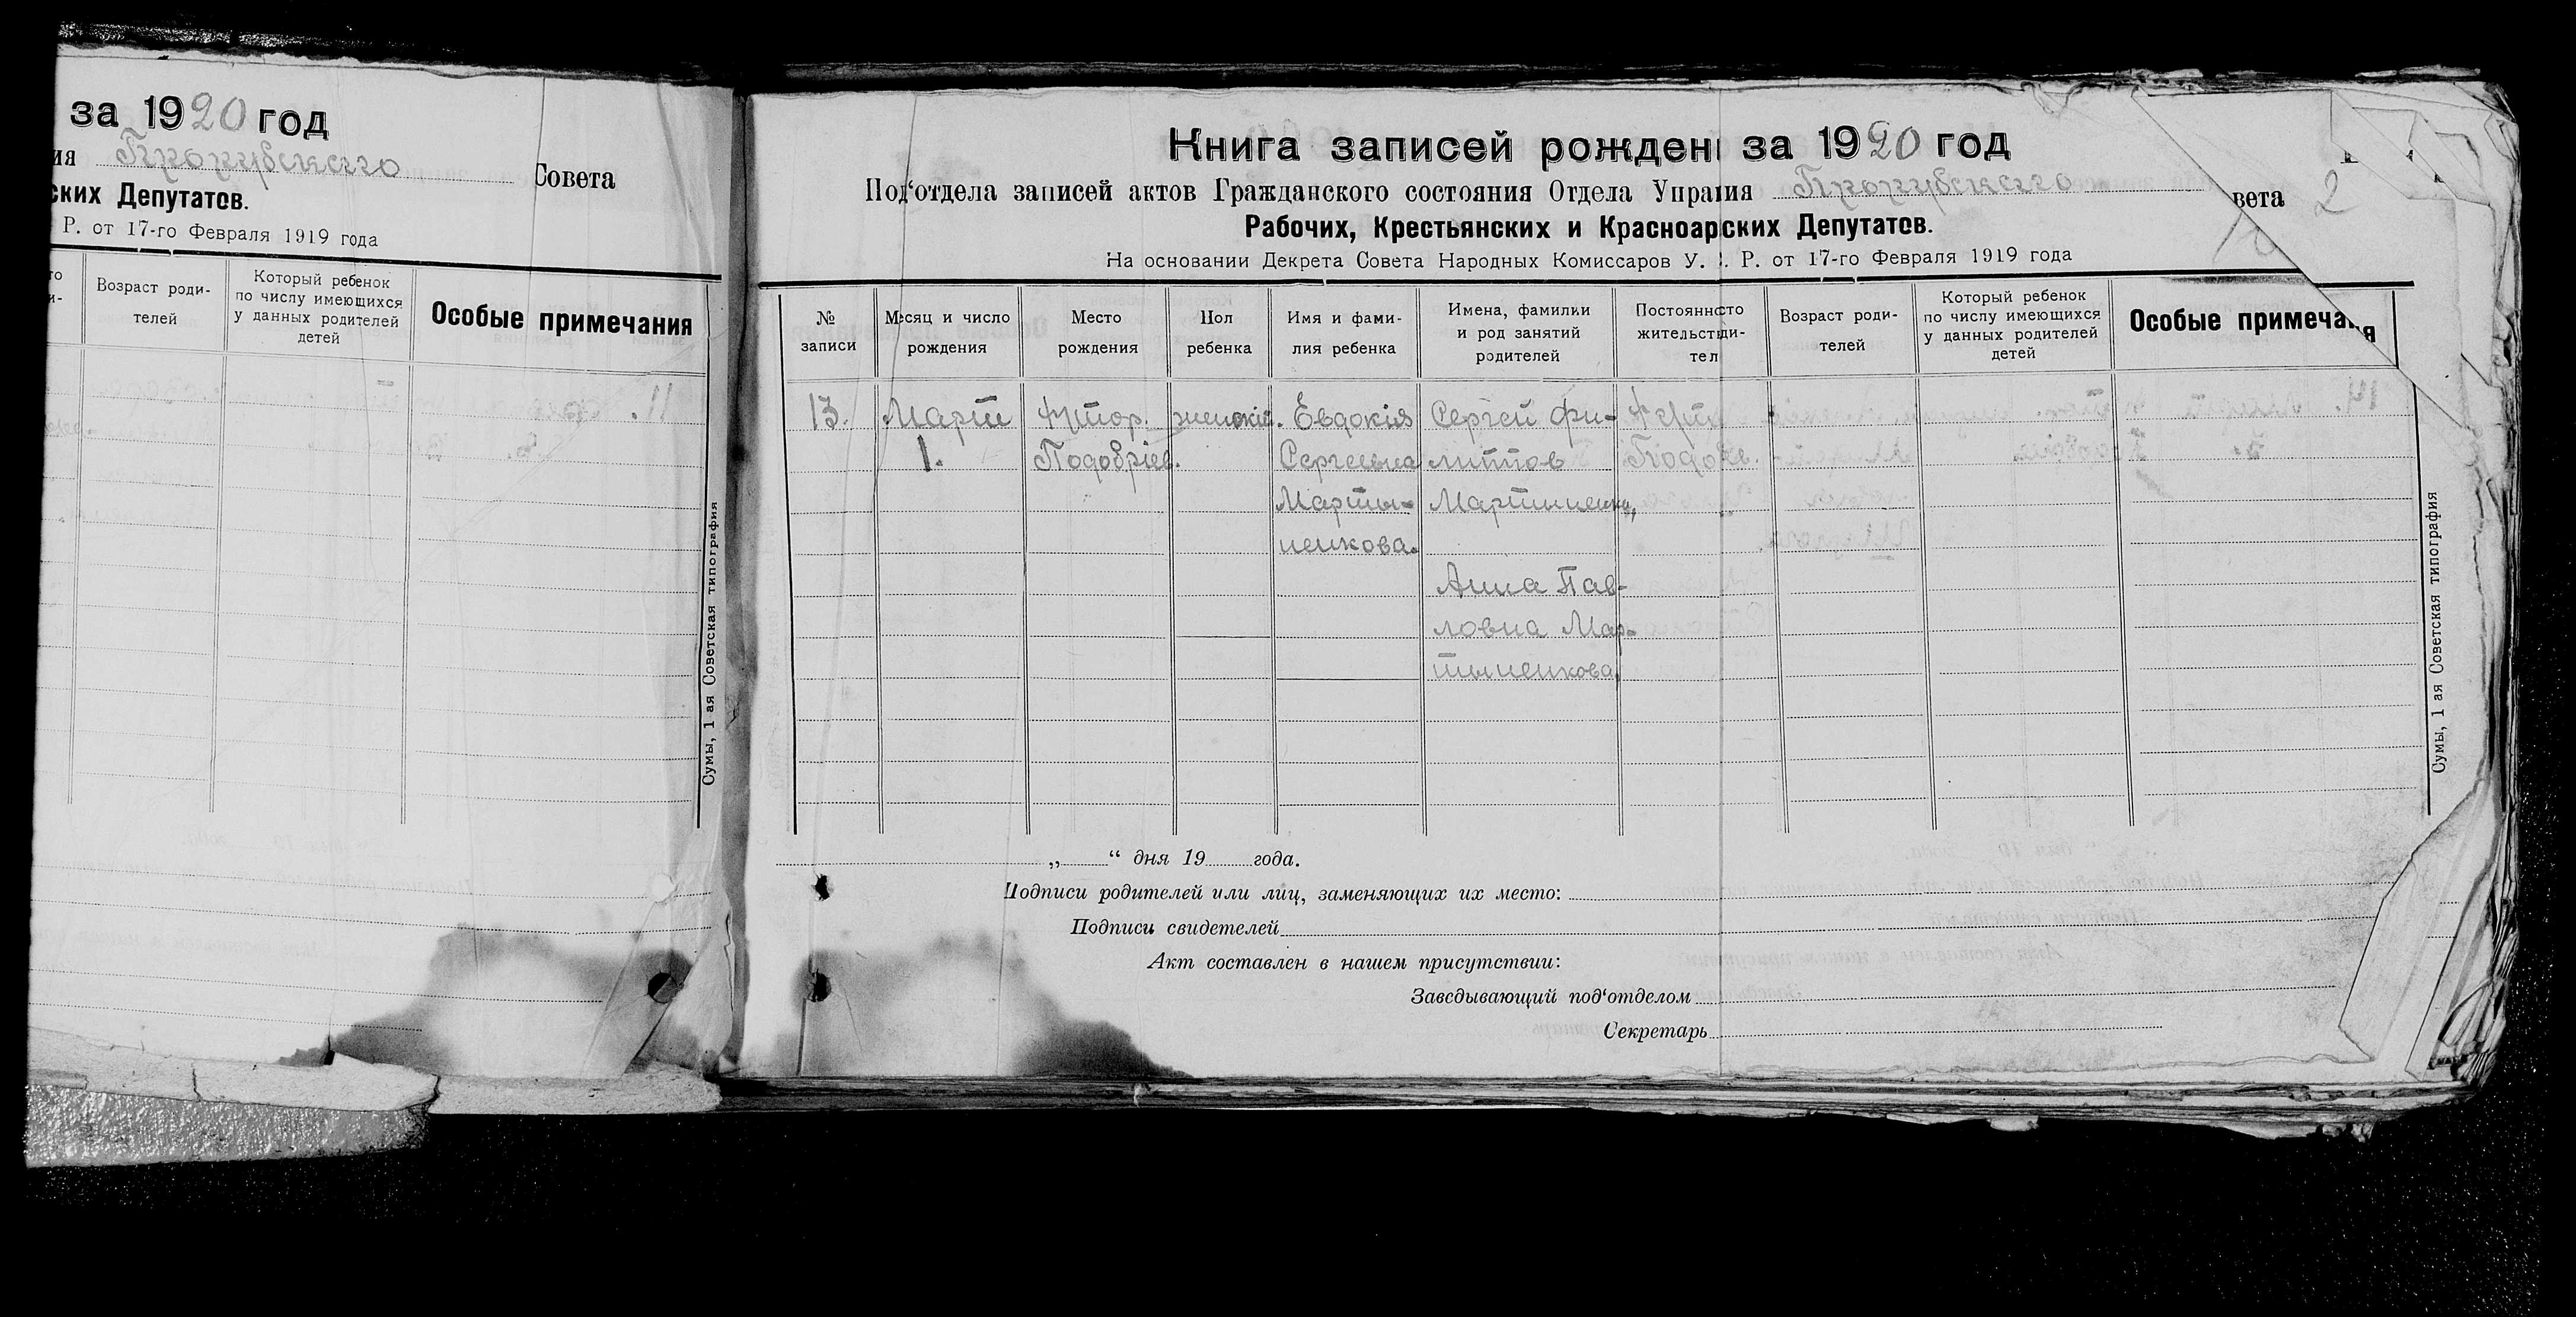 за 1920 год
ия Прокубского Совета
ских Депутатов.
Р. от 17-го Февраля 1919 года
Возраст родителей
Который ребенок по числу имеющихся у данных родителей детей
Особые примечания
Сумы, 1 ая Советская типография
Книга записей рожден за 1920 год
Под‘отдела записей актов Гражданского состояния Отдела Управия Прокубского вета 2
Рабочих, Крестьянских и Красноарских Депутатов.
На основании Декрета Совета Народных Комиссаров У. . Р. от 17-го Февраля 1919 года
№ записи
Месяц и число рождения
Место рождения
Пол ребенка
Имя и фами-
лия ребенка
Имена, фамилии
и род занятий
родителей
Возраст роди-
телей
Который ребенок
по числу имеющихся
у данных родителей
детей
Особые примечания
13. Март Хутор. женскій. Евдокія Сергей Фи-
1. Сергеевна липпов
Марты- Мартыненко,
ненкова.
Анна Пав-
ловна Мар-
тыненкова,
Сумы, 1 ая Советская типография
„ “ дня 19 года.
Подписи родителей или лиц, заменяющих их место:
Подписи свидетелей
Акт составлен в нашем присутствии:
Заведывающий под‘отделом
Секретарь